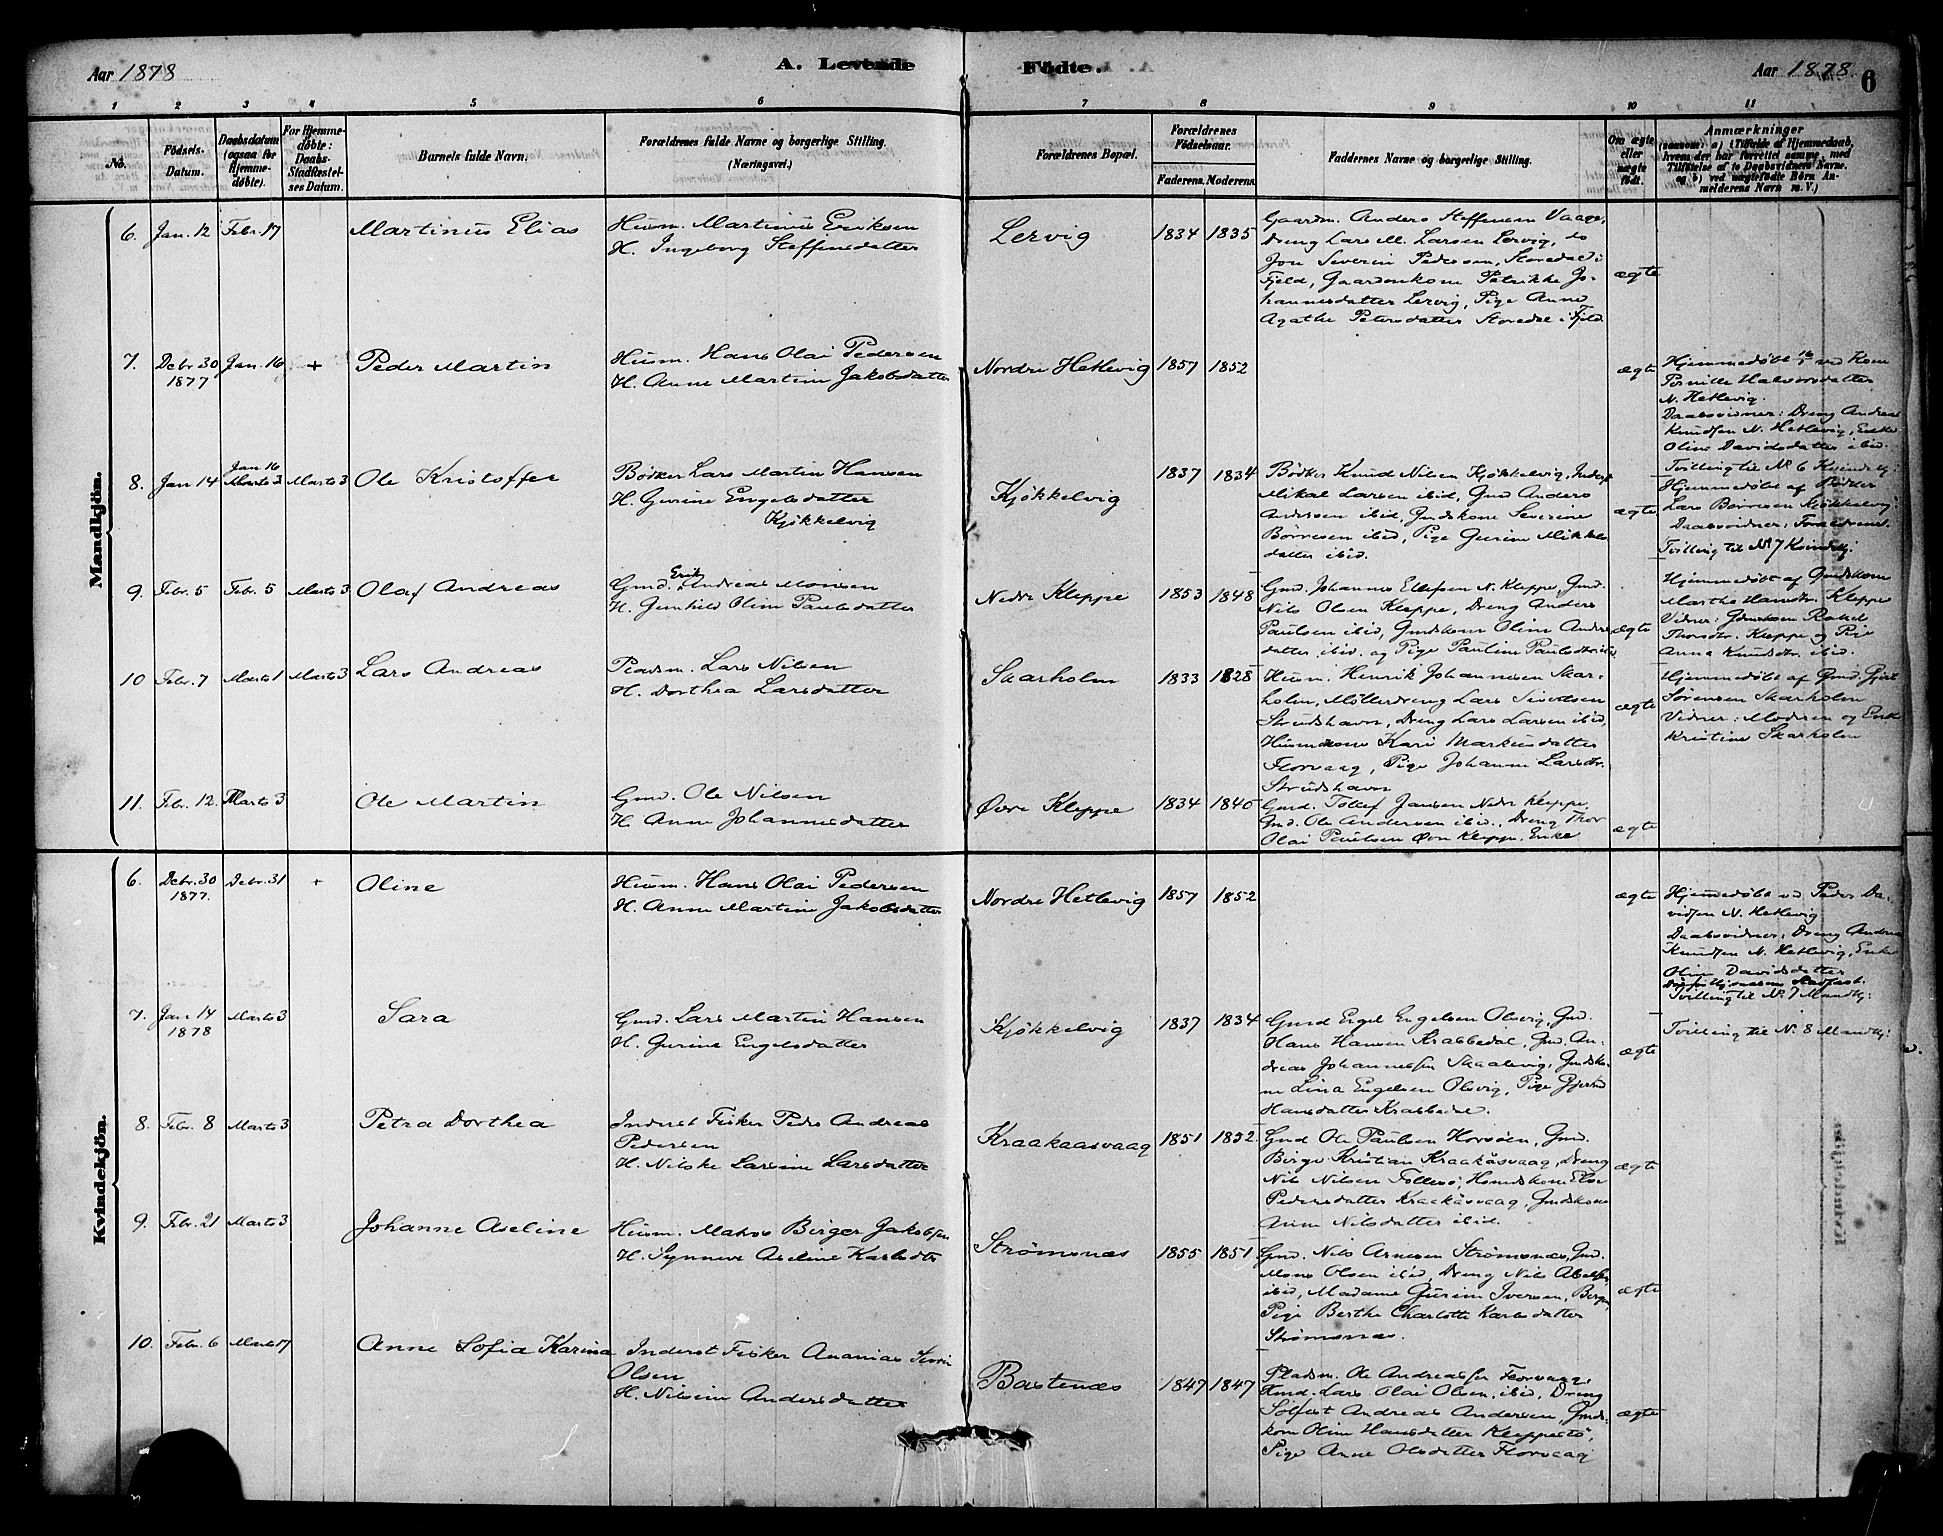 Aar 1878
A. Levende
Födte.
Aar 1878.
6
1 2 3 4 5 6 7 8 9 10 11
No.
Födsels-
Datum.
Daabsdatum
(ogsaa for
Hjemme-
döbte).
For Hjemme-
döbte:
Daabs-
Stadfæstel-
ses Datum.
Barnets fulde Navn.
Forældrenes fulde Navne og borgerlige Stilling.
(Næringsvei.)
Forældrenes Bopæl.
Forældrenes
Födselsaar.
Faderens. Moderens.
Faddernes Navne og borgerlige Stilling.
Om ægte
eller
uægte
födt.
Anmærkninger
(saasom: a) i Tilfælde af Hjemmedaab,
hvem der har forrettet samme, med
Tilföielse af to Daabsvidners Navne,
og b) ved uægtefödte Börn An-
melderens Navn m. V.)
Mandkjön.
6. Jan. 12 Febr. 17 Martinus Elias
Husm. Martinus Eriksen
H. Ingeborg Steffensdatter
Lervig 1834 1835
Gaardm. Anders Steffensen Vaage,
Dreng Lars M. Larsen Lervig, do
Jon Severin Pedersen, Storedal i
Fjeld, Gaardmkone Petrikke Jo-
hannesdatter Lervig, Pige Anne
Agathe Petersdatter Storedal i Fjeld.
ægte
7. Debr. 30 1877 Jan. 16 + Peder Martin
Husm. Hans Olai Pedersen
H. Anne Martine Jakobsdatter
Nordre Hetlevig 1857 1852
ægte
Hjemmedøbt 16/1 ved Kone
Pernille Halvorsdatter
N. Hetlevig.
Daabsvidner: Dreng Andreas
Knudsen N. Hetlevig, Enke
Oline Davidsdatter ibid.
Tvilling til No 6 Kvindekj:
8. Jan 14 Jan 16 Marts 3 Marts 3 Ole Kristoffer
Bødker Lars Martin Hansen
H. Gurine Engelsdatter
Kjøkkelvig
Kjøkkelvig 1837 1834
Bødker Knud Nilsen Kjøkkelvig, Inderst
Mikal Larsen ibid, Gmd Anders
Andersen ibid, Gmdskone Severine
Børresen ibid, Pige Gurine Mikkels
datter ibid.
ægte
Hjemmedøbt af Bødker
Lars Børresen Kjøkkelvig:
Daabsvidner: Forældrene.
Tvilling til No 7 Kvindekj.
9. Febr. 5 Febr. 5 Marts 3 Olaf Andreas
Gmd. Erik Andreas Monsen
H. Gunhild Oline Paulsdatter
Nedre Kleppe 1853 1848
Gmd. Johannes Ellefsen N. Kleppe, Gmd.
Nils Olsen Kleppe, Dreng Anders
Paulsen ibid, Gmdskone Oline Anders
datter, ibid. og Pige Pauline Paulsdtr ibid
ægte
Hjemmedøbt af Gmdskone
Marthe Hansdtr. Kleppe
Vidner: Gdmskone Rakel
Thorsdtr. Kleppe og Pige
Anna Knudsdtr. ibid.
10 Febr. 7 Marts 1 Marts 3 Lars Andreas
Pladsm. Lars Nilsen
H. Dorthea Larsdatter
Skarholm 1833 1828
Husm. Henrik Johannesen Skar-
holm, Møllerdreng Lars Sivertsen
Strudshavn, Dreng Lars Larsen ibid,
Husmkone Kari Markusdatter
Florvaag, Pige Johanne Larsdtr.
Strudshavn
ægte
Hjemmedøbt af Gmd. Gjert
Sørensen Skarholm
Vidner: Moderen og Enke
Kristine Skarholm
11. Febr. 12. Marts 3 Ole Martin
Gmd. Ole Nilsen
H. Anne Johannesdatter
Øvre Kleppe 1834 1840
Gmd. Tollef Jansen Nedre Kleppe,
Gmd. Ole Andersen ibid., Dreng Thor
Olai Paulsen Øvre Kleppe, Enke
ægte
Kvindekjön.
6. Debr. 30 1877. Debr. 31 + Oline
Husm. Hans Olai Pedersen
H. Anne Martine Jakobsdatter
Nordre Hetlevig 1857 1852
ægte
Hjemmedøbt ved Peder Da-
vidsen N. Hetlevig
Daabsvidner: Dreng Andreas
Knudsen N. Hetlevig, Enke
Oline Davidsdatter
Tvilling til No. 7 Mandkj:
7. Jan. 14 1878 Marts 3 Sara
Gmd. Lars Martin Hansen
H. Gurine Engelsdatter
Kjøkkelvig 1837 1834
Gmd Engel Engelsen Olsvig, Gmd.
Hans Hansen Krabbedal, Gmd. An-
dreas Johannessen Skaalevig, Gmdsko-
ne Lina Engelsen Olsvig, Pige Gjertrud
Hansdatter Krabbedal.
ægte
Tvilling til N. 8 Mandkj:
8. Febr. 8 Marts 3 Petra Dorthea
Inderst Fisker Peder Andreas
Pedersen
H. Nilske Larsine Larsdatter
Kraakaasvaag 1851 1852.
Gmd Ole Paulsen Horsöen, Gmd.
Birge Kristian Kraakåsvaag, Dreng
Nils Nilsen Follesø, Husmdskone Else
Pedersdatter Kraakåsvaag, Gmdskone
Anne Nilsdatter ibid.
ægte
9. Febr. 21 Marts 3 Johanne Aseline
Husm. Mathis Birger Jakobsen
H. Synneve Aseline Karlsdtr
Strømsnæs 1855 1851
Gmd. Nils Arnesen Strømsnæs, Gmd.
Mons Olsen ibid, Dreng Nils Abelsen
ibid, Madame Gurine Iversen, Bergen
Pige Berthe Charlotte Karlsdatter
Strømsnæs.
ægte
10. Febr. 6 Marts 17 Anne Sofia Karina
Inderst Fisker Ananias Severin
Olsen
H. Nilsine Andersdatter
Bastenæs 1847 1847
Pladsm. Ole Andreassen Florvaag,
Gmd. Lars Olai Olsen, ibid, Dreng
Sølfest Andreas Andersen, Gmds-
kone Oline Hansdatter Kleppestø,
Pige Anne Olsdatter Florvaag
ægte